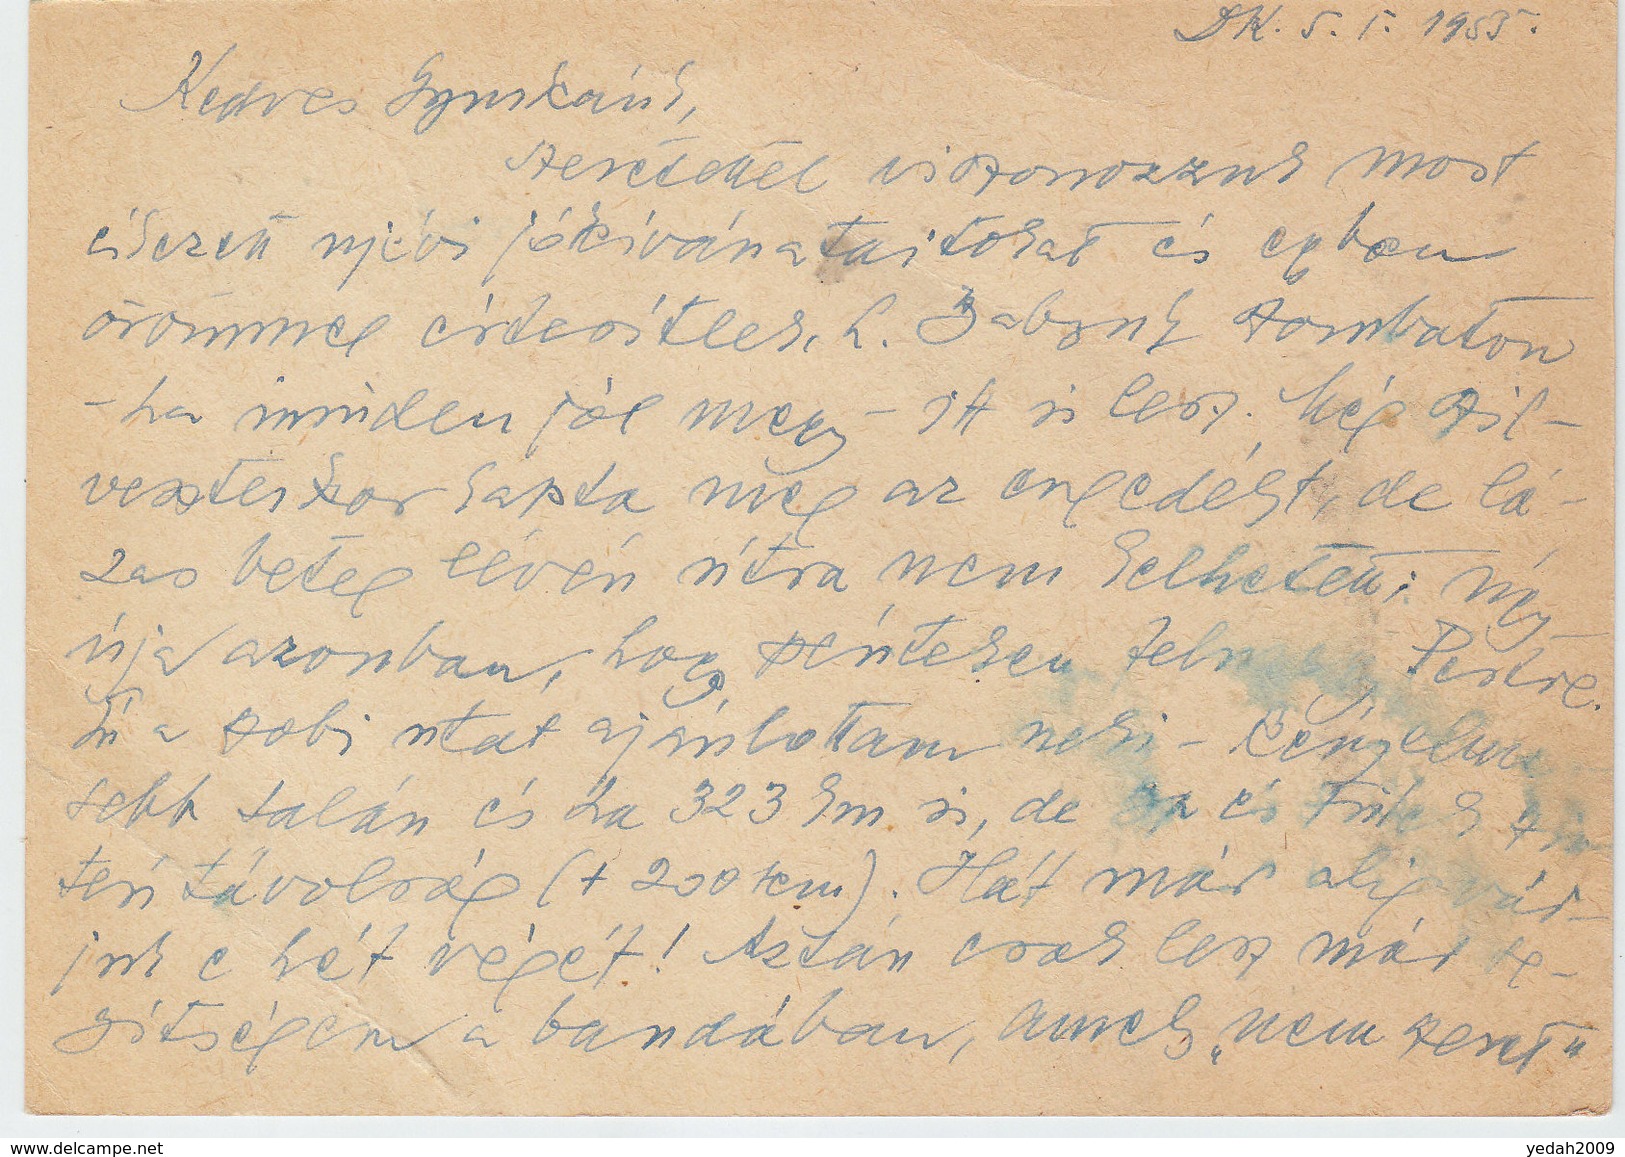 DK. 5. I. 1955.
Kedves Gyuskáék,
szeretettel viszonozzuk most
érkezett ujévi jókívánataitokat és egyben
örömmel értesítlek, h. Babynk szombaton
- ha minden jól megy - itt is lesz. Még Szil-
veszterkor kapta meg az engedélyt, de lá-
zas beteg lévén útra nem kelhetett;
írja azonban, hogy pénteken Pestre.
Én a szobi utat ajánlottam neki - kényelme-
sebb talán és ha 323 km is, de és
távolság (+ 200 km). Hát már alig vár-
juk e hét végét! Aztán csak lesz már se-
gítségem a bandában, amely „nem szeret"
yedah2009
www.delcampe.net